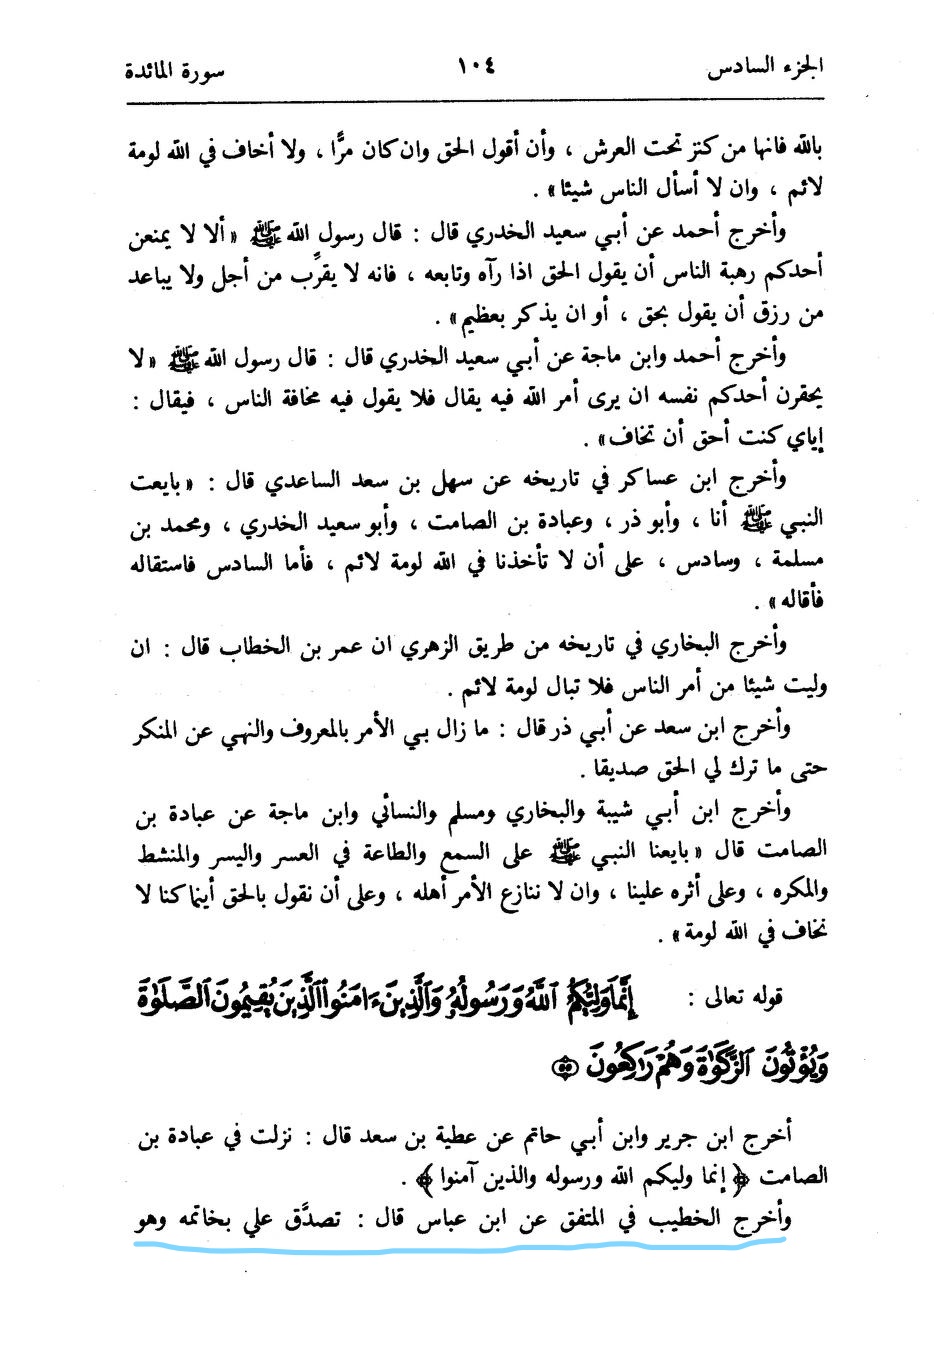 الجزء السادس ١٠٤ سورة المائدة
بالله فانها من كنز تحت العرش ، وأن أقول الحق وان كان مرًّا ، ولا أخاف في الله لومة
لائم ، وان لا أسأل الناس شيئا» .
وأخرج أحمد عن أبي سعيد الخدري قال : قال رسول الله ﷺ «ألا لا يمنعن
أحدكم رهبة الناس أن يقول الحق اذا رآه وتابعه ، فانه لا يقرِّب من أجل ولا يباعد
من رزق أن يقول بحق ، أو ان يذكر بعظيم» .
وأخرج أحمد وابن ماجة عن أبي سعيد الخدري قال : قال رسول الله ﷺ «لا
يحقرن أحدكم نفسه ان يرى أمر الله فيه يقال فلا يقول فيه مخافة الناس ، فيقال :
إياي كنت أحق أن تخاف» .
وأخرج ابن عساكر في تاريخه عن سهل بن سعد الساعدي قال : «بايعت
النبي ﷺ أنا ، وأبو ذر ، وعبادة بن الصامت ، وأبو سعيد الخدري ، ومحمد بن
مسلمة ، وسادس ، على أن لا تأخذنا في الله لومة لائم ، فأما السادس فاستقاله
فأقاله» .
وأخرج البخاري في تاريخه من طريق الزهري ان عمر بن الخطاب قال : ان
وليت شيئا من أمر الناس فلا تبال لومة لائم .
وأخرج ابن سعد عن أبي ذر قال : ما زال بي الأمر بالمعروف والنهي عن المنكر
حتى ما ترك لي الحق صديقا .
وأخرج ابن أبي شيبة والبخاري ومسلم والنسائي وابن ماجة عن عبادة بن
الصامت قال «بايعنا النبي ﷺ على السمع والطاعة في العسر واليسر والمنشط
والمكره ، وعلى أثره علينا ، وان لا ننازع الأمر أهله ، وعلى أن نقول بالحق أينما كنا لا
نخاف في الله لومة» .
قوله تعالى : إِنَّمَا وَلِيُّكُمُ ٱللَّهُ وَرَسُولُهُۥ وَٱلَّذِينَ ءَامَنُوا ٱلَّذِينَ يُقِيمُونَ ٱلصَّلَوٰةَ
وَيُؤْتُونَ ٱلزَّكَوٰةَ وَهُمْ رَٰكِعُونَ ۝٥٥
أخرج ابن جرير وابن أبي حاتم عن عطية بن سعد قال : نزلت في عبادة بن
الصامت ﴿إنما وليكم الله ورسوله والذين آمنوا﴾ .
وأخرج الخطيب في المتفق عن ابن عباس قال : تصدَّق علي بخاتمه وهو